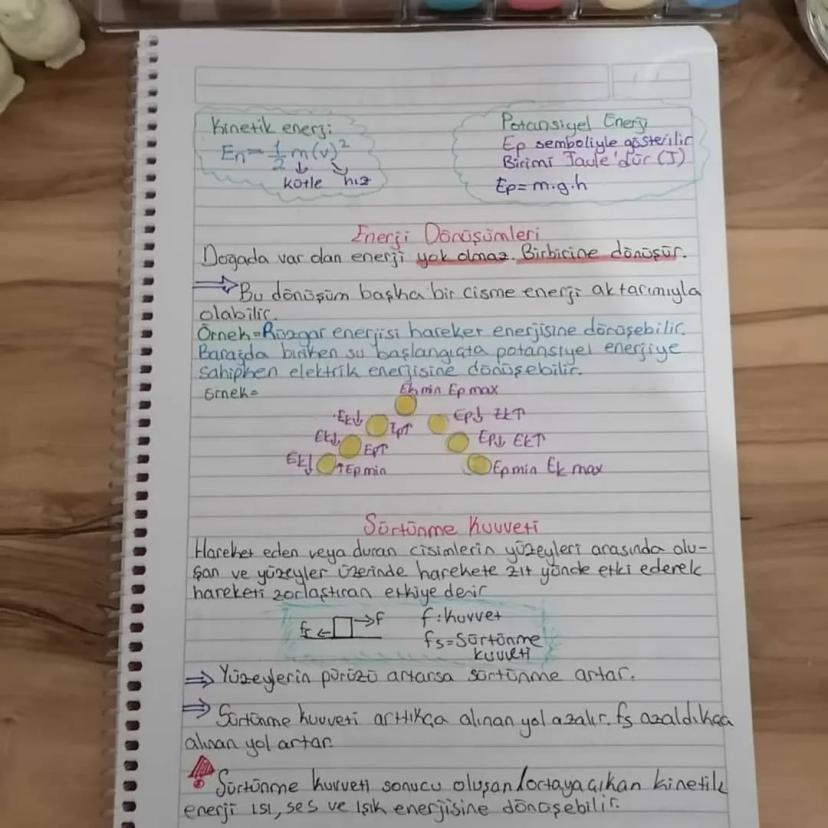 Kinetik enerji
En = 1/2 m(v)²
kütle hız
Potansiyel Enerji
Ep semboliyle gösterilir
Birimi Joule'dür (J)
Ep = m.g.h
Enerji Dönüşümleri
Doğada var olan enerji yok olmaz. Birbirine dönüşür.
⇒ Bu dönüşüm başka bir cisme enerji aktarımıyla
olabilir.
Örnek = Rüzgar enerjisi hareker enerjisine dönüşebilir.
Barajda biriken su başlangıçta potansiyel enerjiye
sahipken elektrik enerjisine dönüşebilir.
örnek =
Ek min Ep max
Ek↓ Ep↑ Ep↓ Ek↑
Ek↓ Ep↑ Ep↓ Ek↑
Ek↓ ↑Ep min Ep min Ek max
Sürtünme Kuvveti
Hareket eden veya duran cisimlerin yüzeyleri arasında olu-
şan ve yüzeyler üzerinde harekete zıt yönde etki ederek
hareketi zorlaştıran etkiye denir
fs ← → f f: kuvvet
fs = Sürtünme
kuvveti
⇒ Yüzeylerin pürüzü artarsa sürtünme artar.
⇒ Sürtünme kuvveti arttıkça alınan yol azalır. fs azaldıkça
alınan yol artar.
Sürtünme kuvveti sonucu oluşan/ortaya çıkan kinetik
enerji ısı, ses ve ışık enerjisine dönüşebilir.